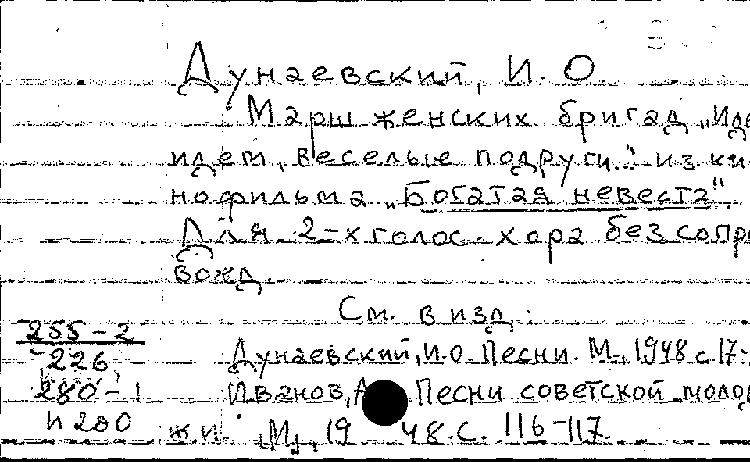 Дунаевский, И.О
Марш женских бригад „Иде
идем, веселые подруги..." из ки
нофильма „Богатая невеста"
Для 2-х голос. хора без сопро
вожд.
См. в изд.:
255-2
226, Дунаевский, И.О. Песни. М., 1948 с.17-
280-1 Иванов, А Песни советской молод
н 280 жи. М., 1948. с. 116-117.